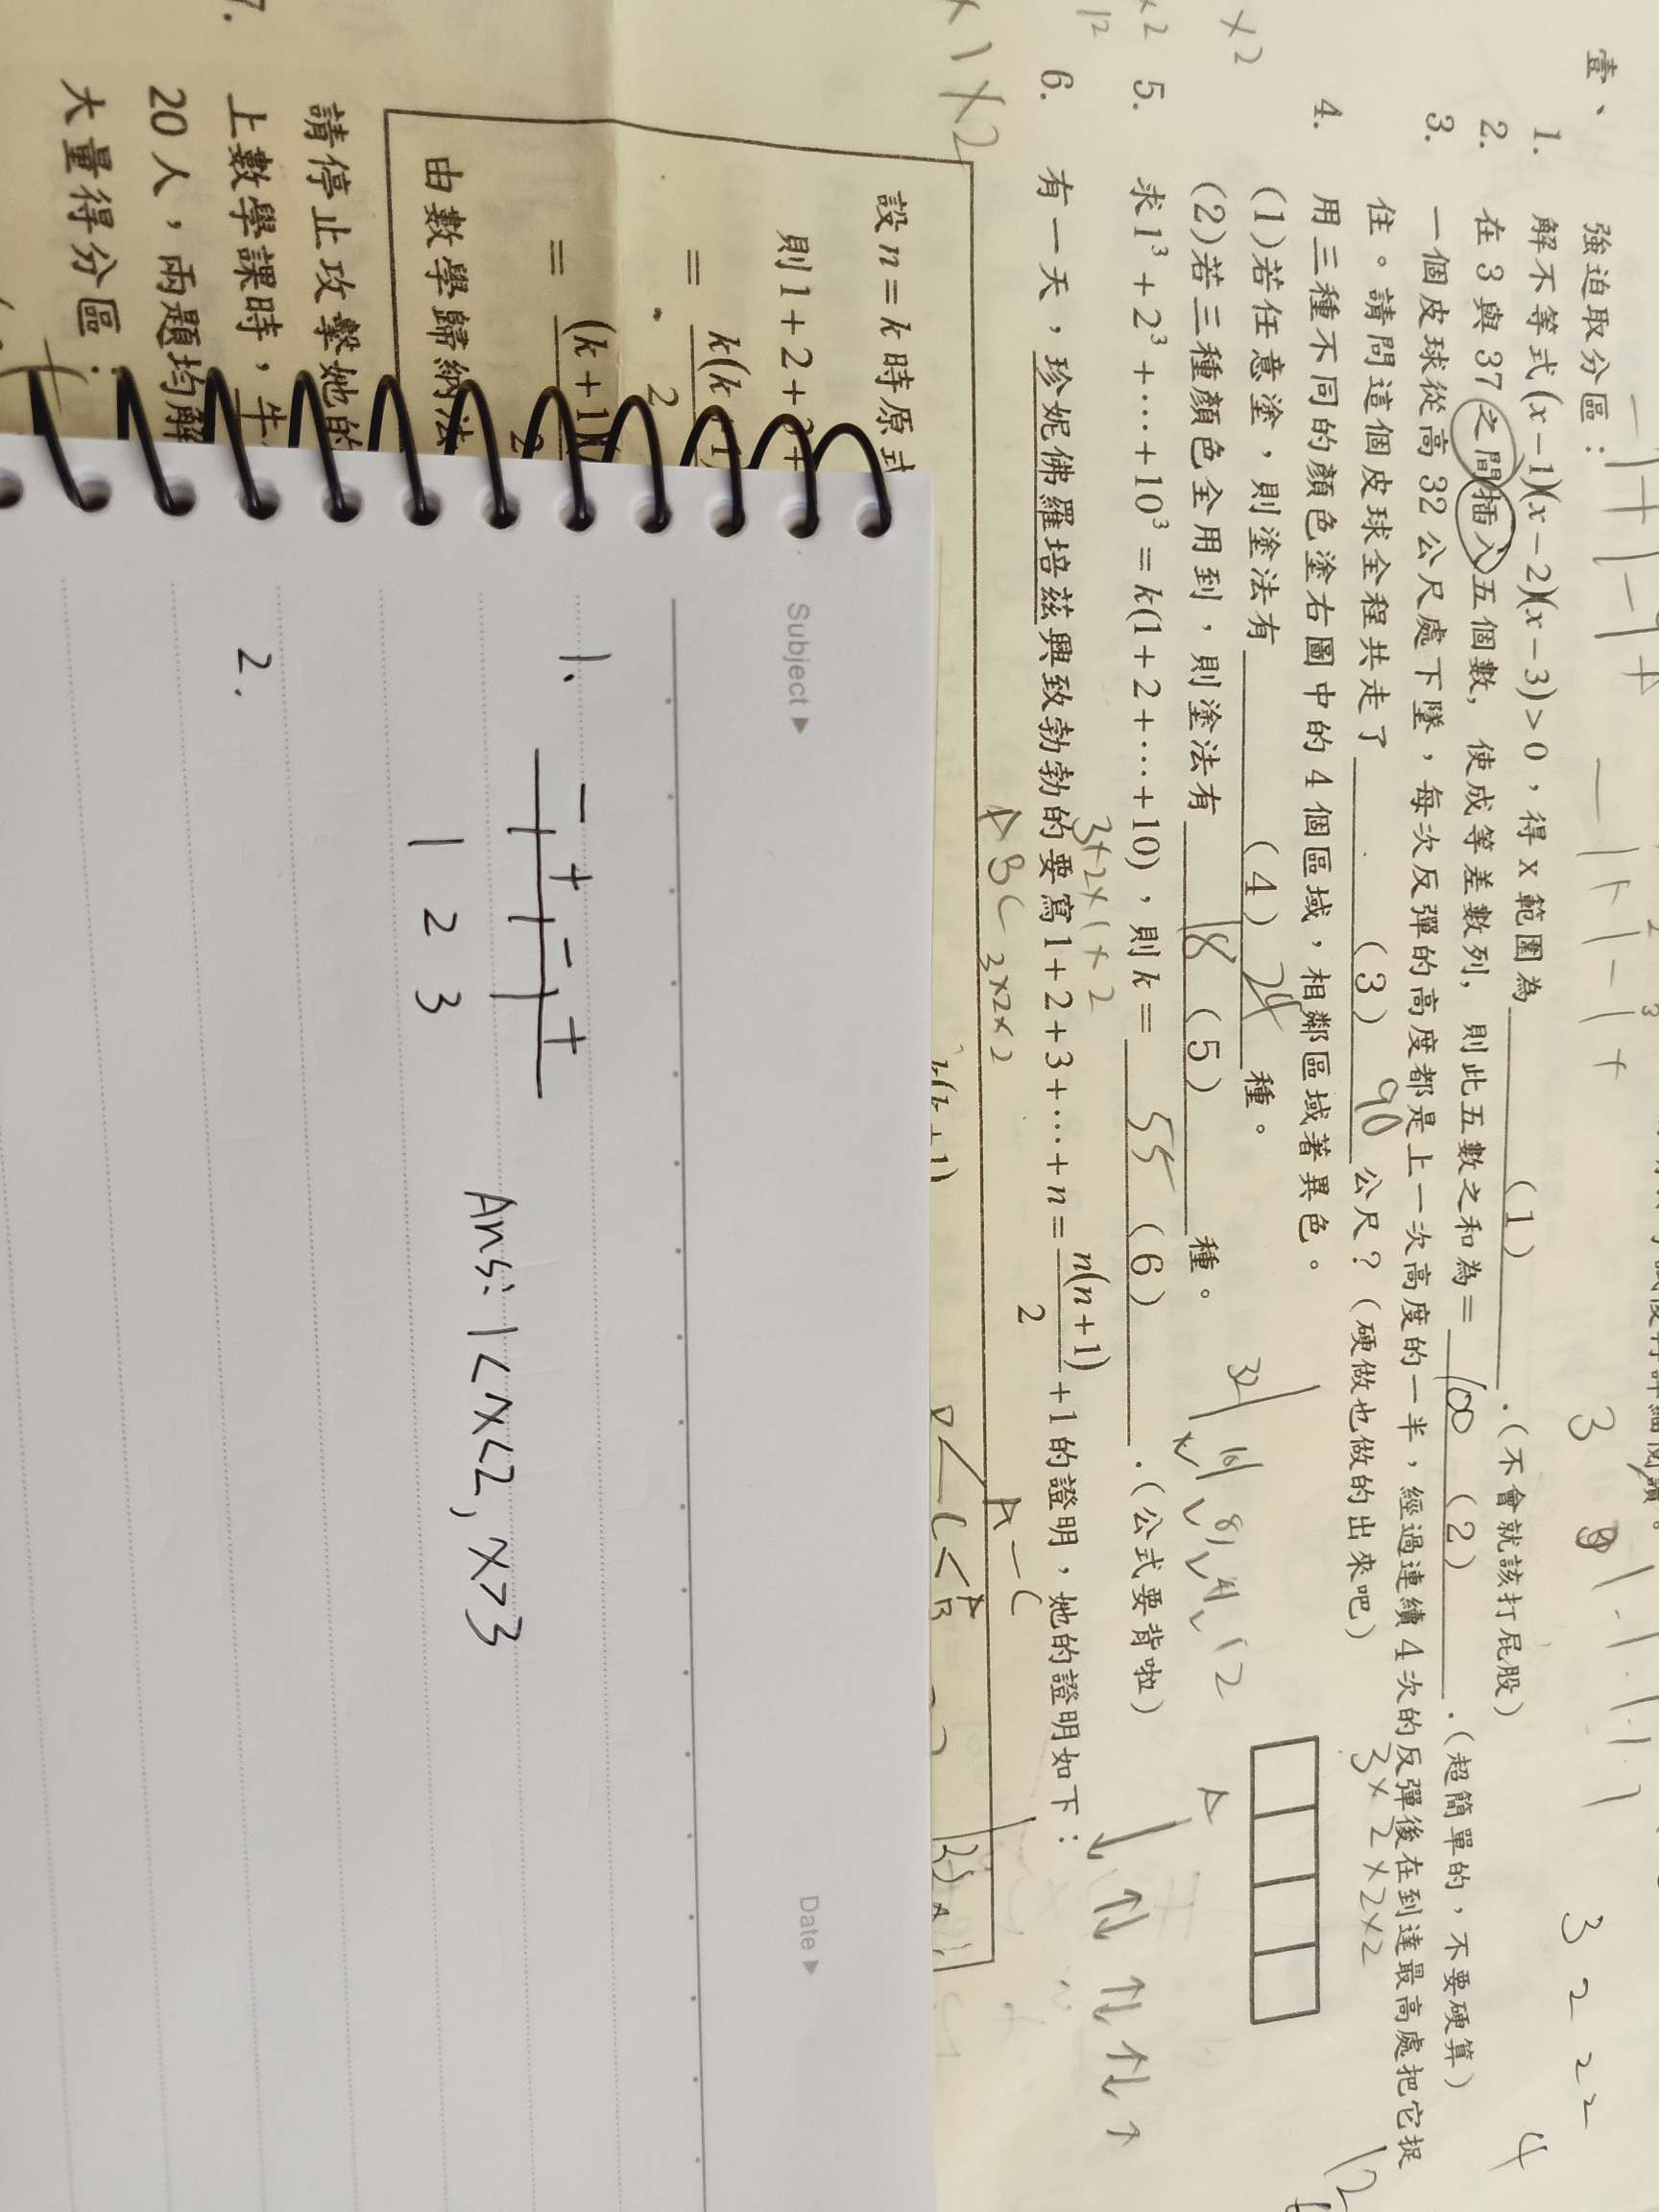 壹、 強迫取分區：
1. 解不等式(x−1)(x−2)(x−3)>0，得 X 範圍為 (1) .(不會就該打屁股)
2. 在 3 與 37 之間插入五個數, 使成等差數列, 則此五數之和為= 100 (2) .(超簡單的，不要硬算)
3. 一個皮球從高 32 公尺處下墜，每次反彈的高度都是上一次高度的一半，經過連續 4 次的反彈後在到達最高處把它捉
住。請問這個皮球全程共走了 (3) 90 公尺？(硬做也做的出來吧)
3×2×2×2
4. 用三種不同的顏色塗右圖中的 4 個區域，相鄰區域著異色。
(1)若任意塗，則塗法有 (4) 24 種。
(2)若三種顏色全用到，則塗法有 18 (5) 種。
5. 求1³+2³+⋯+10³=k(1+2+⋯+10)，則k= 55 (6) .(公式要背啦)
3×2×1×2
6. 有一天，珍妮佛羅培茲興致勃勃的要寫1+2+3+⋯+n=n(n+1)/2+1的證明，她的證明如下：
ABC 3×2×2
設n=k時原式
則1+2+3+
= k(k+1)/2
= (k+1)(/2
由數學歸納法
請停止攻擊她的
7. 上數學課時，牛
20人，兩題均解
大量得分區：
Subject ▸ Date ▸
1. − + − +
1 2 3
Ans: 1<x<2, x>3
2.